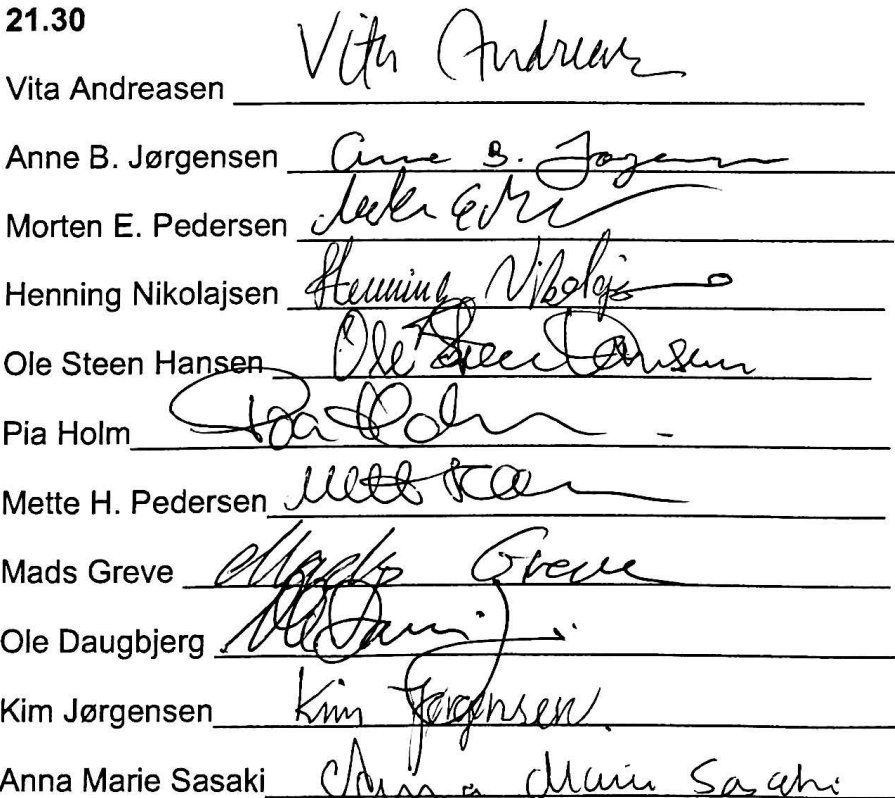 21.30
Vita Andreasen Vita Andreasen
Anne B. Jørgensen Anne B. Jørgensen
Morten E. Pedersen
Henning Nikolajsen Henning Nikolajsen
Ole Steen Hansen Ole Steen Hansen
Pia Holm Pia Holm
Mette H. Pedersen Mette
Mads Greve Mads Greve
Ole Daugbjerg Ole
Kim Jørgensen Kim Jørgensen
Anna Marie Sasaki Anna Marie Sasaki